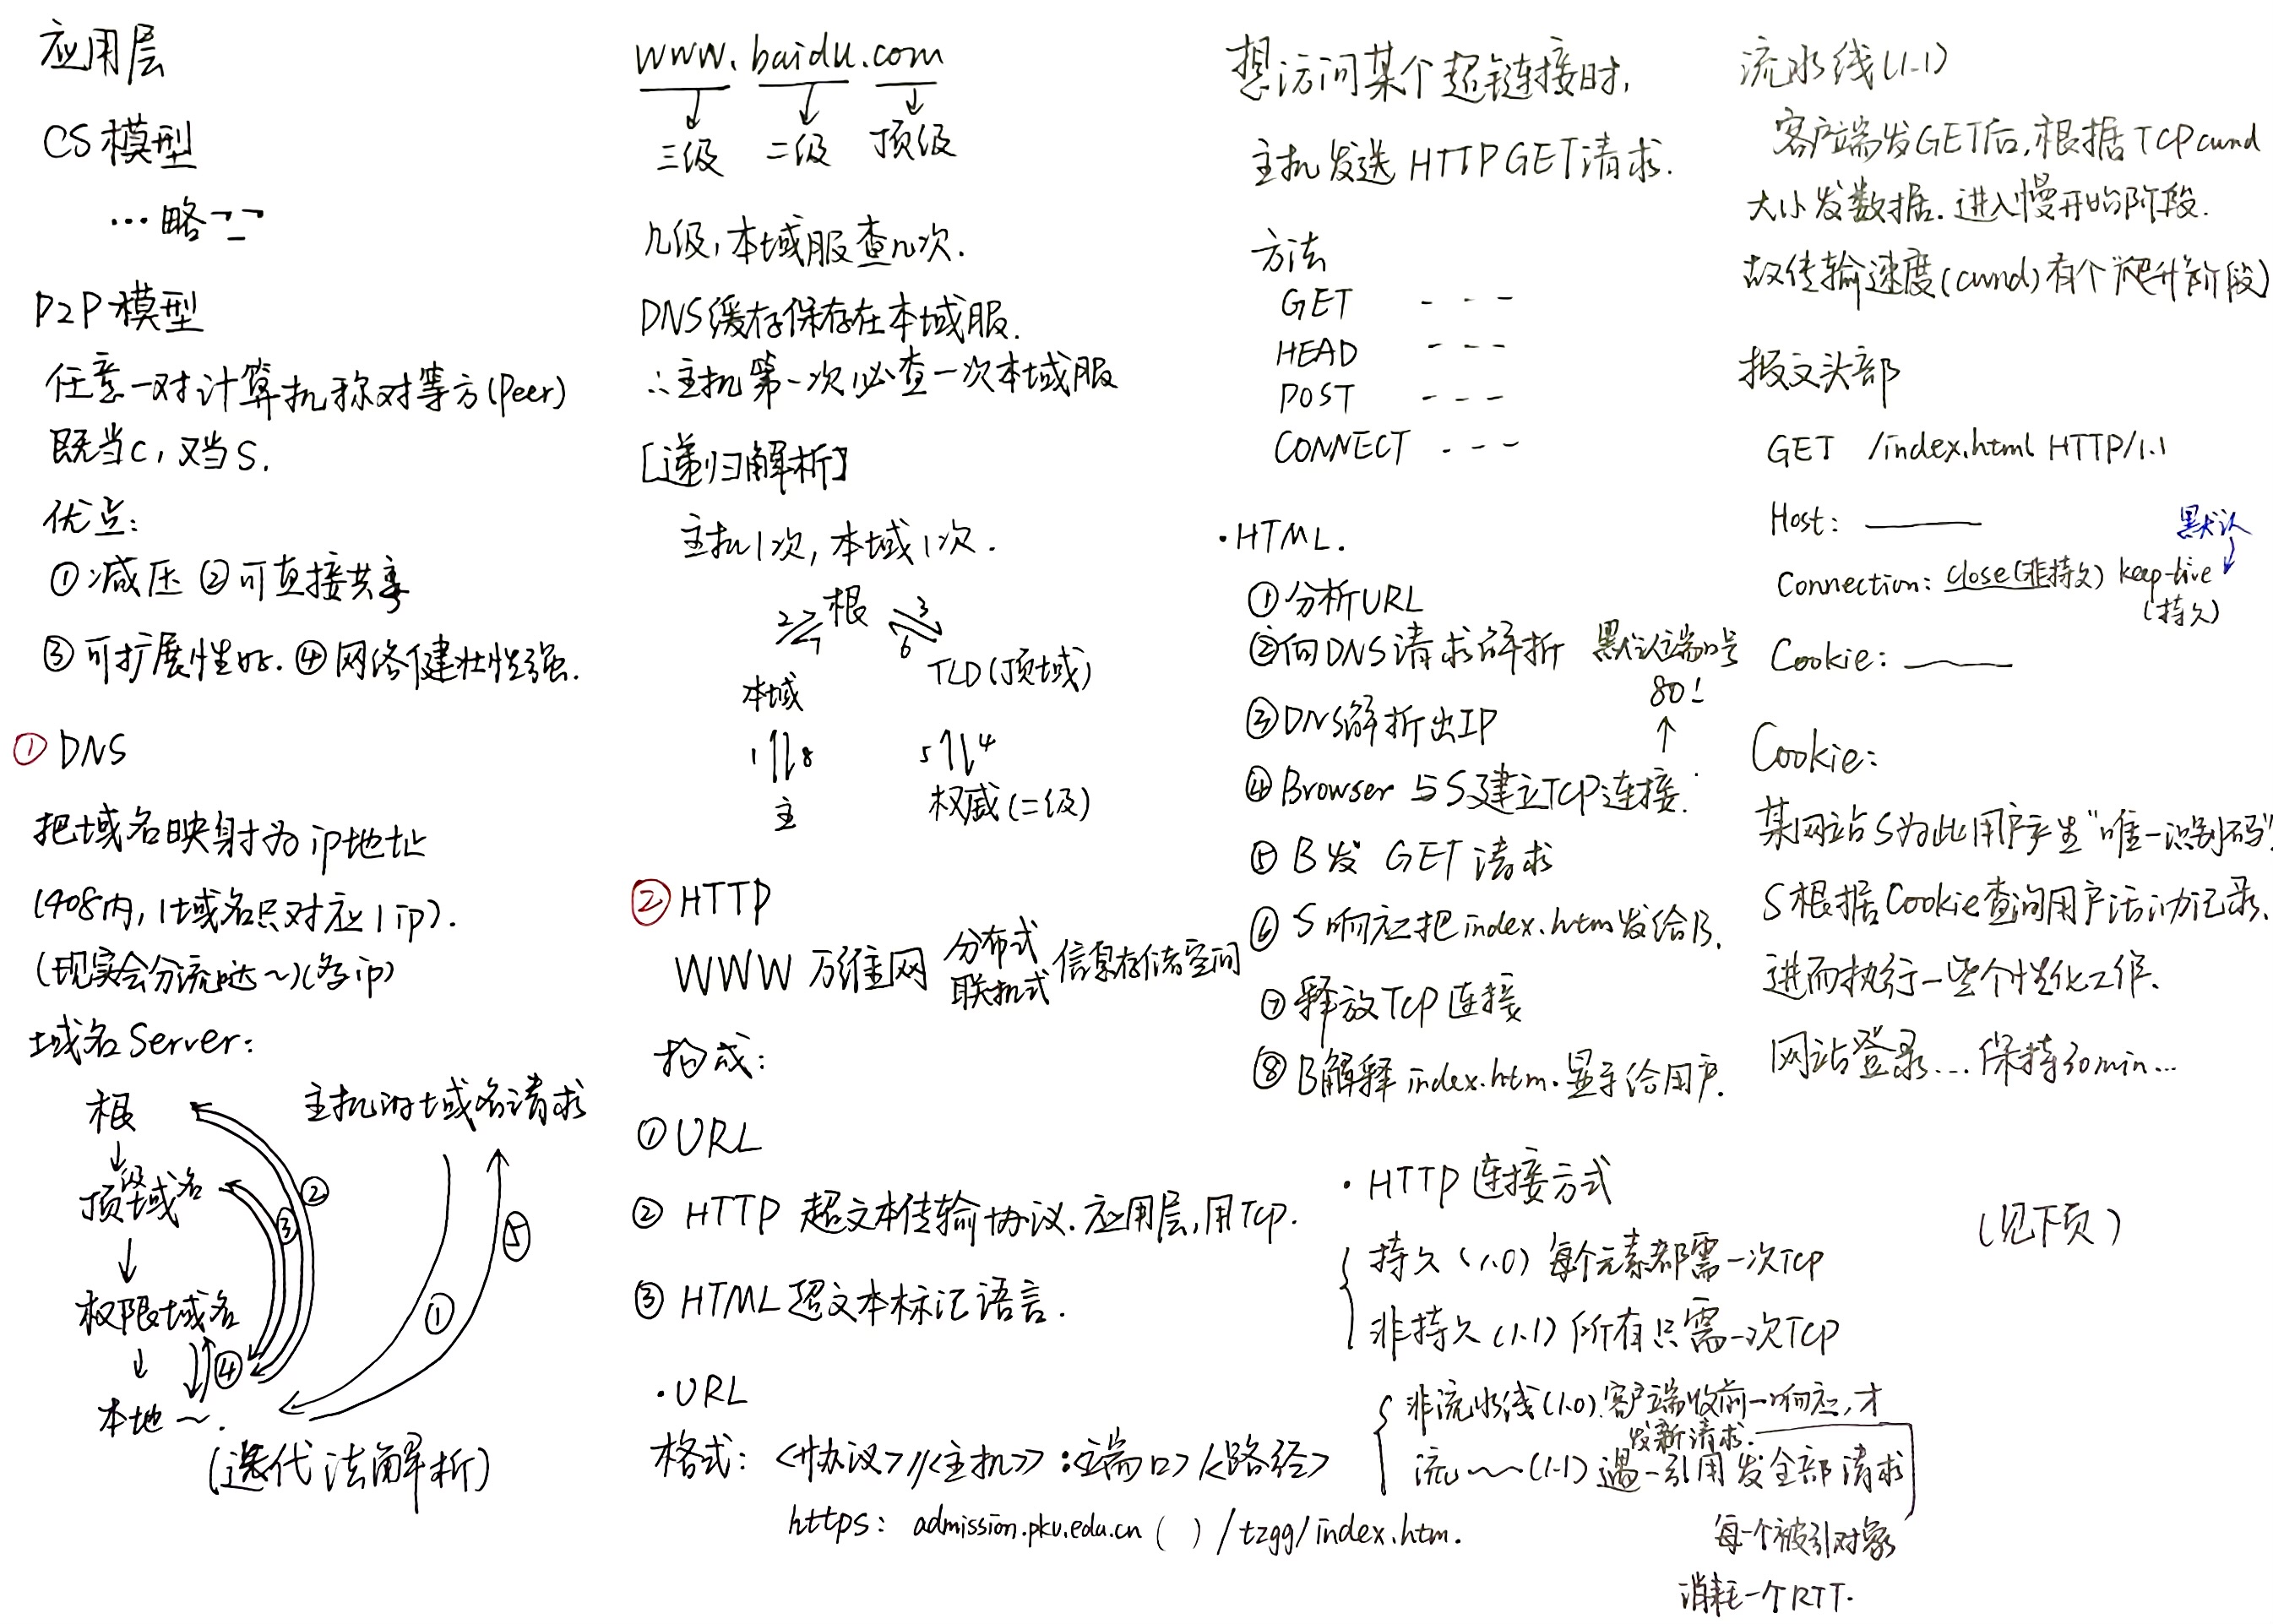 应用层
CS模型
… 略
P2P模型
任意一对计算机称对等方(Peer)
既当C，又当S.
优点：
①减压 ②可直接共享
③可扩展性好. ④网络健壮性强.
① DNS
把域名映射为ip地址
(408内，1域名只对应1ip).
(现实会分流哒~)(多ip)
域名Server:
根
主机的域名请求
顶级域名
权限域名
本地~.
① ② ③ ④ ⑤
(迭代法解析)
www.baidu.com
三级 二级 顶级
几级，本域服查几次.
DNS缓存保存在本域服.
∴主机第一次必查一次本域服
[递归解析]
主机1次，本域1次.
2 7 根 3 6
本域 TLD(顶域)
1 8 5 4
主 权威(二级)
② HTTP
WWW 万维网 分布式 联机式 信息存储空间
构成：
①URL
② HTTP 超文本传输协议. 应用层，用TCP.
③ HTML 超文本标记语言.
·URL
格式：<协议>//<主机>:<端口>/<路径>
https: admission.pku.edu.cn ( ) /tzgg/index.htm.
想访问某个超链接时，
主机发送 HTTP GET请求.
方法
GET - - -
HEAD - - -
POST - - -
CONNECT - - -
·HTML.
①分析URL
②向DNS请求解折 默认端口号
80!
③DNS解折出IP
④Browser 与S建立TCP连接.
⑤ B发 GET 请求
⑥ S响应把index.htm发给B.
⑦ 释放TCP连接
⑧ B解释 index.htm. 显示给用户.
· HTTP连接方式
持久(1.0) 每个元素都需一次TCP
非持久(1.1) 所有只需一次TCP
非流水线(1.0). 客户端收前一响应，才
发新请求.
流~~(1.1) 遇一引用发全部请求
每一个被引对象
消耗一个RTT.
流水线(1.1)
客户端发GET后，根据TCP cwnd
大小发数据. 进入慢开始阶段.
故传输速度(cwnd)有个"爬升"阶段)
报文头部
GET /index.html HTTP/1.1
Host:
默认
Connection: close(非持久) keep-live
(持久)
Cookie:
Cookie:
某网站S为此用户产生"唯一识别码".
S根据Cookie查询用户活动记录.
进而执行一些个性化工作.
网站登录… 保持30min…
(见下页)